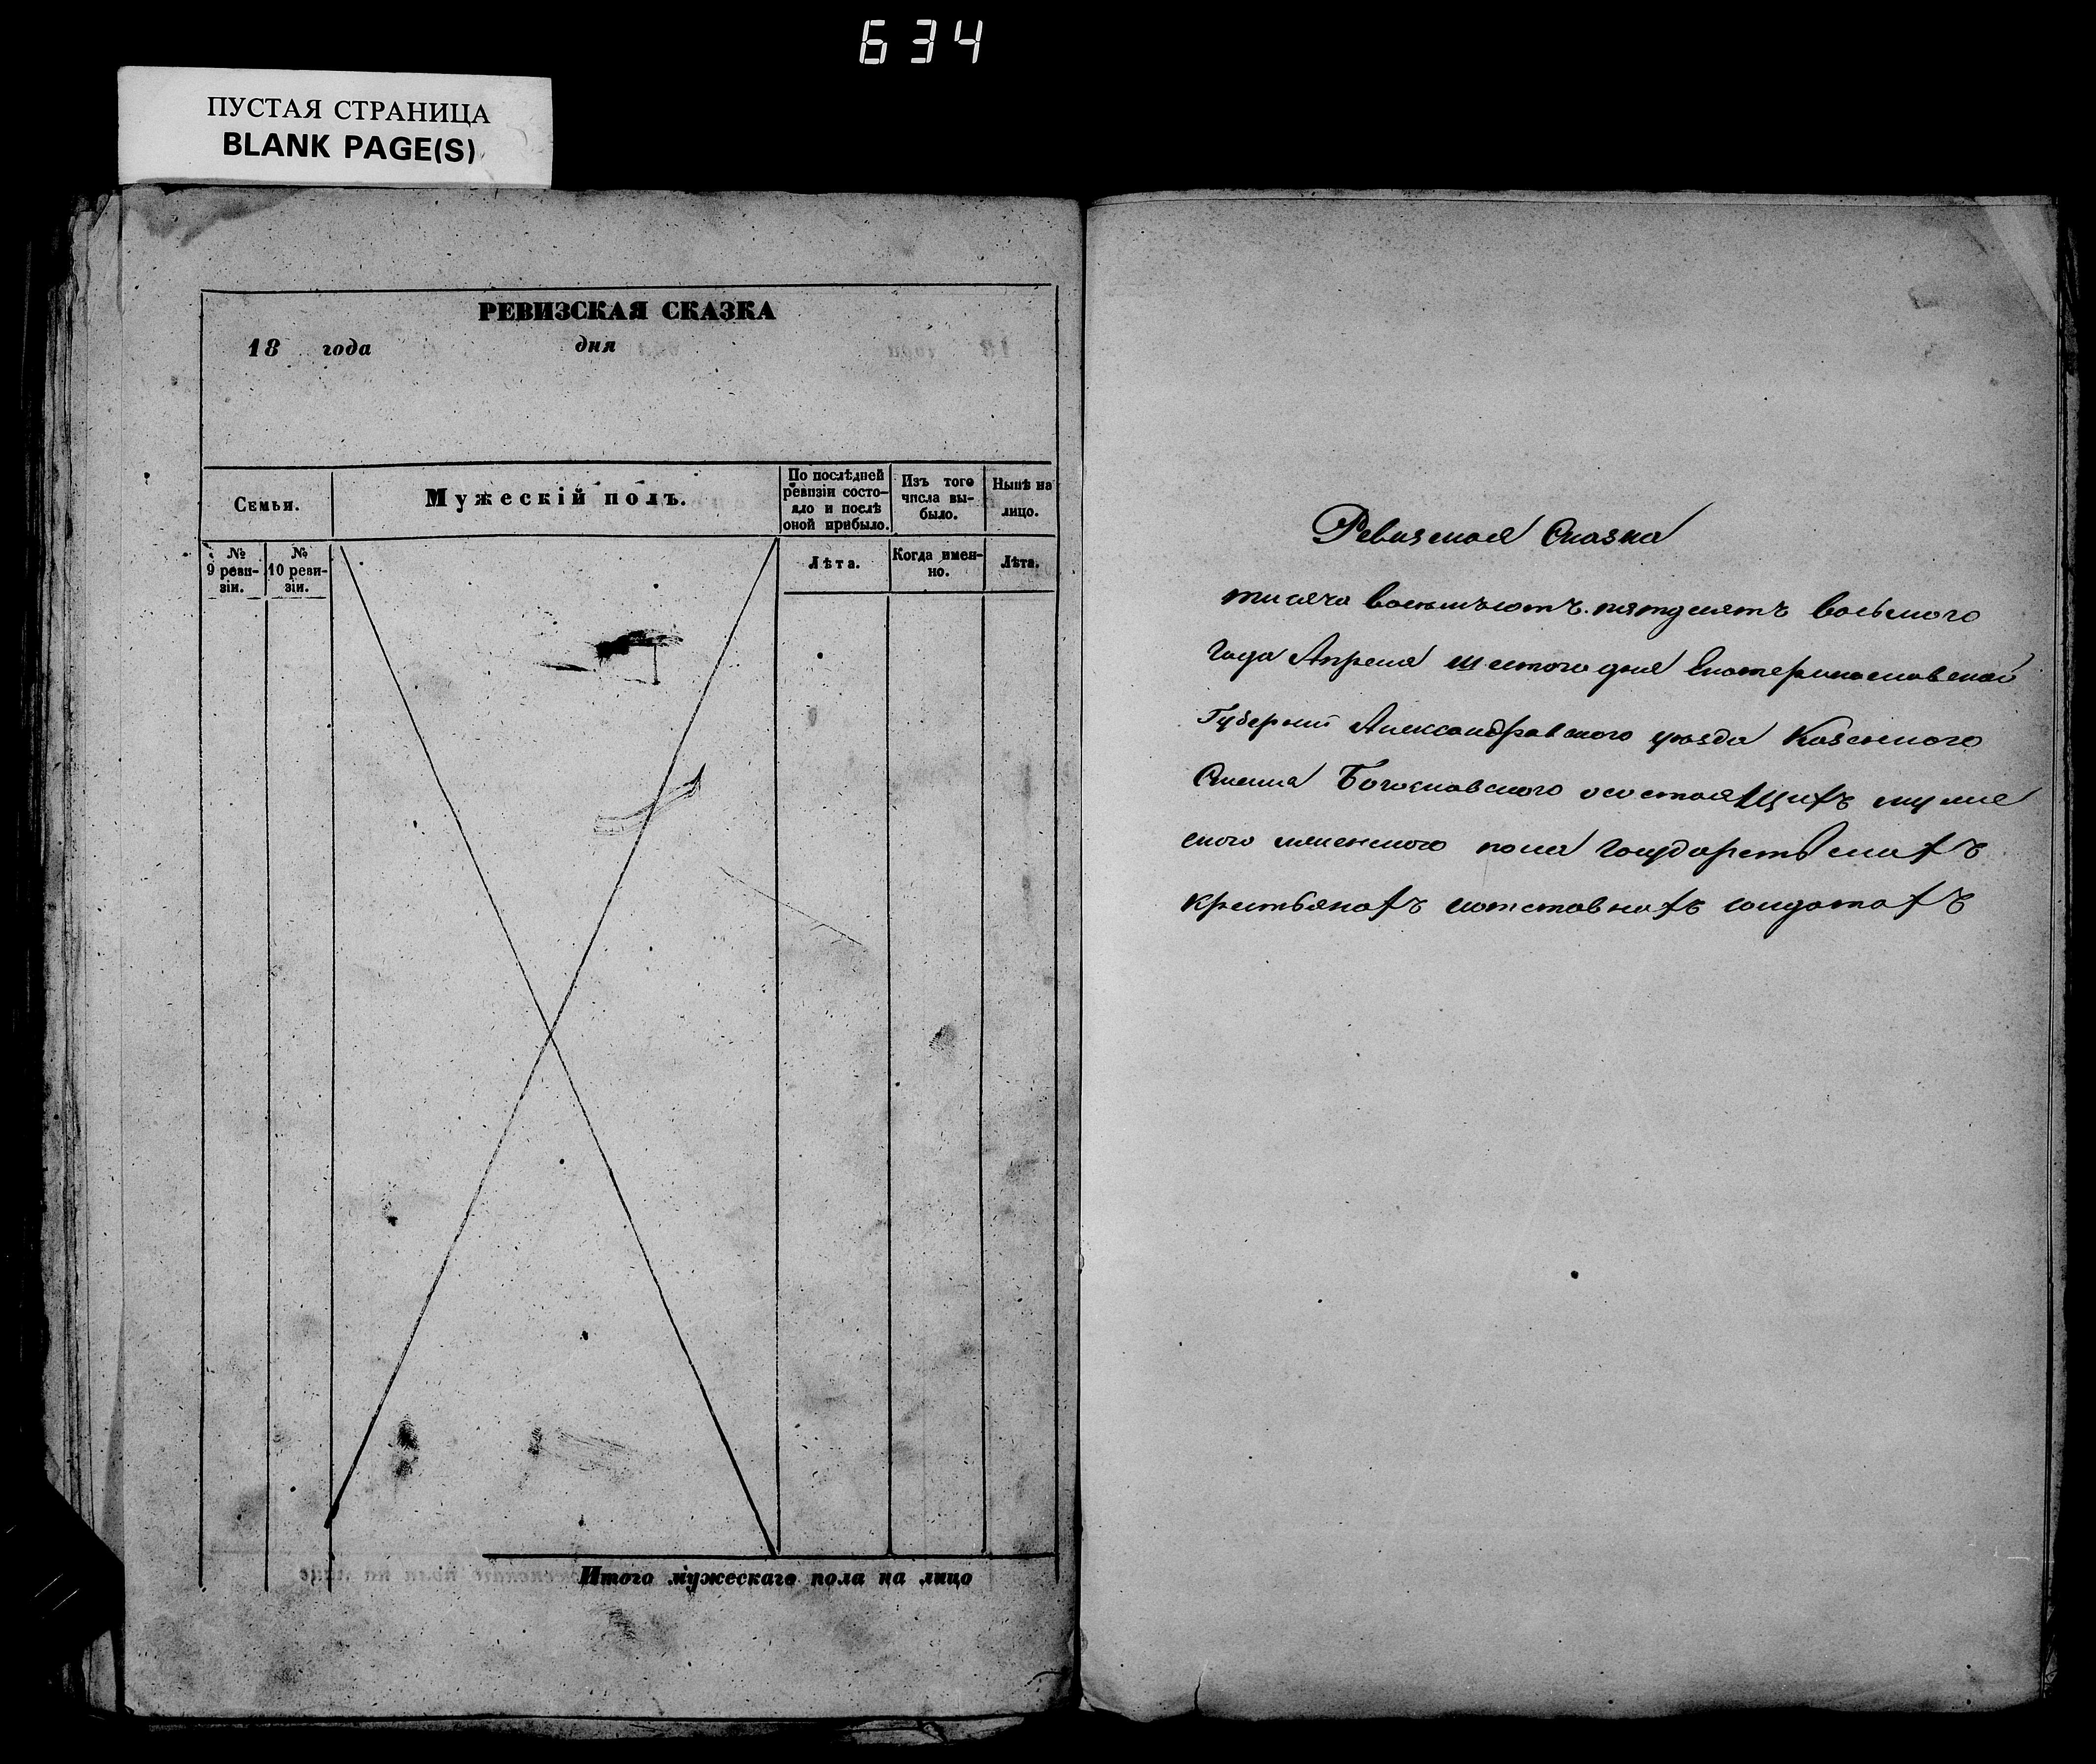 634
ПУСТАЯ СТРАНИЦА
BLANK PAGE(S)
РЕВИЗСКАЯ СКАЗКА
18 года дня
Семьи.
Мужескій полъ.
По послѣдней ревизіи состояло и послѣ оной прибыло.
Изъ того числа выбыло.
Нынѣ на лицо.
№ 9 ревизіи.
№ 10 ревизіи.
Лѣта.
Когда именно.
Лѣта.
Итого мужескаго пола на лицо
Ревизская Сказка
тисяча восемьсотъ пятдесятъ восьмого
Года Апреля шестого дня Екатеринославской
Губерний Александравского уезда Казенного
Селения Богословского осостоящихъ муже
ского иженского пола государствених ъ
крестьянахъ иотставнахъ солдатахъ